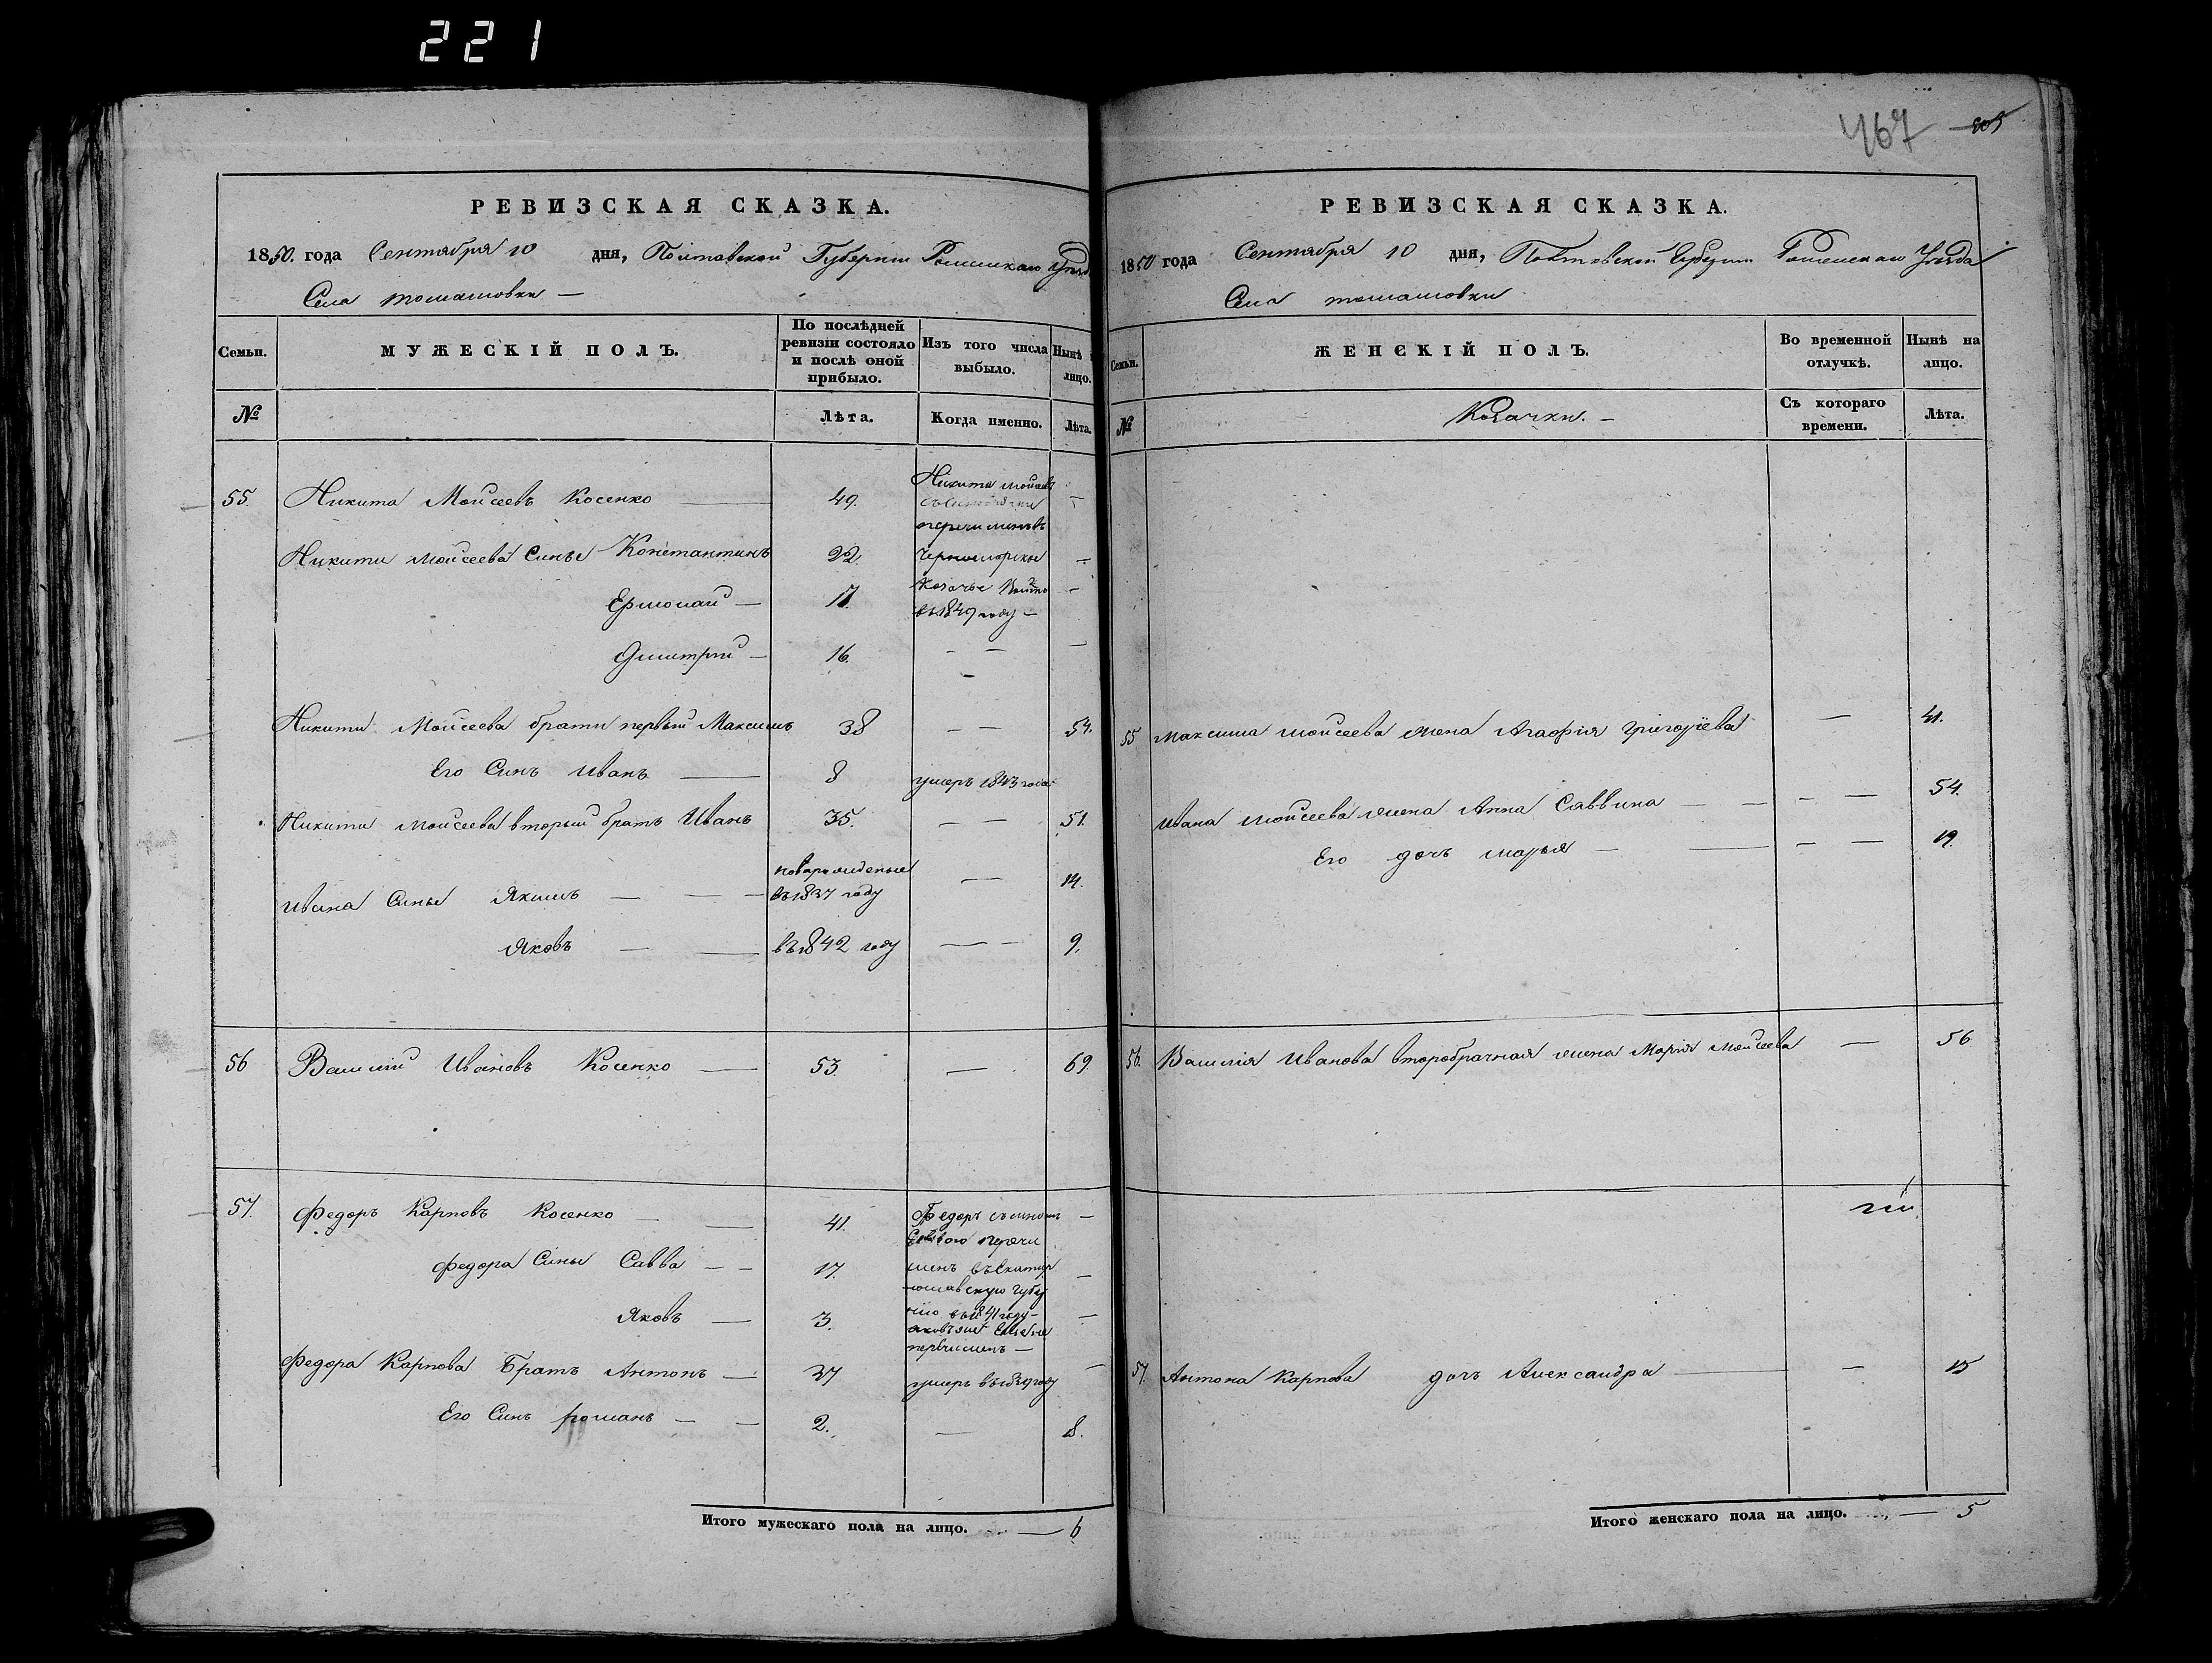 221
467 505
РЕВИЗСКАЯ СКАЗКА.
1850. года Сентября 10 дня, Полтавской Губернии Роменскаго Уезда
Села томашовки —
Семьи. МУЖЕСКІЙ ПОЛЪ. По послѣдней ревизіи состояло и послѣ оной прибыло. Изъ того числа выбыло. Нынѣ лицо.
№ Лѣта. Когда именно. Лѣта.
55. Никита Моисеевъ Косенко — 49. Никита моисеевъ —
съ
перечисленъ въ
Никиты моисеева Сынъ Константинъ 22. Черноморское —
Ермолай — 17. Козачье Войско —
въ 1849 году —
Дмитрий — 16. — — —
Никиты Моисеева братъ первый Максимъ 38 — — 54.
Его Синъ Иванъ — 8 умеръ 1843 года
Никиты моисеева вторый братъ Иванъ 35. — — 51.
новорожденые
Ивана Сины Якимъ — — въ 1837 году — 14.
Яковъ — — въ 1842 году — — 9.
56 Василий Ивановъ Косенко — 53. — 69.
57. Федоръ Карповъ Косенко — — 41. Федоръ съ сыномъ —
Саввою перечи
Федора Сины Савва — — 17. сленъ въ Екатери —
нославскую губер
нію въ 1841 году —
Яковъ — 3. —
перечисленъ —
Федора Карпова Братъ Антонъ — 37 умеръ въ 1839 году —
Его Синъ романъ — — 2. — 18.
Итого мужескаго пола на лицо. — 6
РЕВИЗСКАЯ СКАЗКА.
1850 года Сентября 10 дня, Полтавской Губернии Роменскаго Уезда
Села томашовки
Семьи. ЖЕНСКІЙ ПОЛЪ. Во временной отлучкѣ. Нынѣ на лицо.
№ Козачки. — Съ котораго времени. Лѣта.
55 Максима моисеева жена Агафія григоріева — 41.
Ивана моисеева жена Анна Саввина — — — — 54.
Его дочь марья — — — — 19.
56. Василія Иванова второбрачная жена Марія моисеева — 56
57. Антона Карпова дочь Александра — — 15
Итого женскаго пола на лицо. — 5